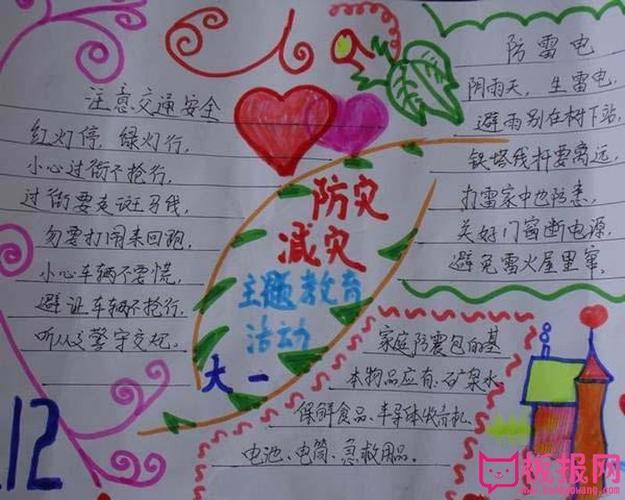 注意交通安全
红灯停，绿灯行，
小心过街不抢行，
过街要走斑马线，
勿要打闹来回跑，
小心车辆不要慌，
避让车辆不抢行，
听从交警守交规。
12
防灾
减灾
主题教育
活动
大一
防雷电
阴雨天，生雷电，
避雨别在树下站，
铁塔线杆要离远，
打雷家中也防患，
关好门窗断电源，
避免雷火屋里窜。
家庭防震包的基
本物品应有：矿泉水
保鲜食品、半导体收音机、
电池、电筒、急救用品。
板报网